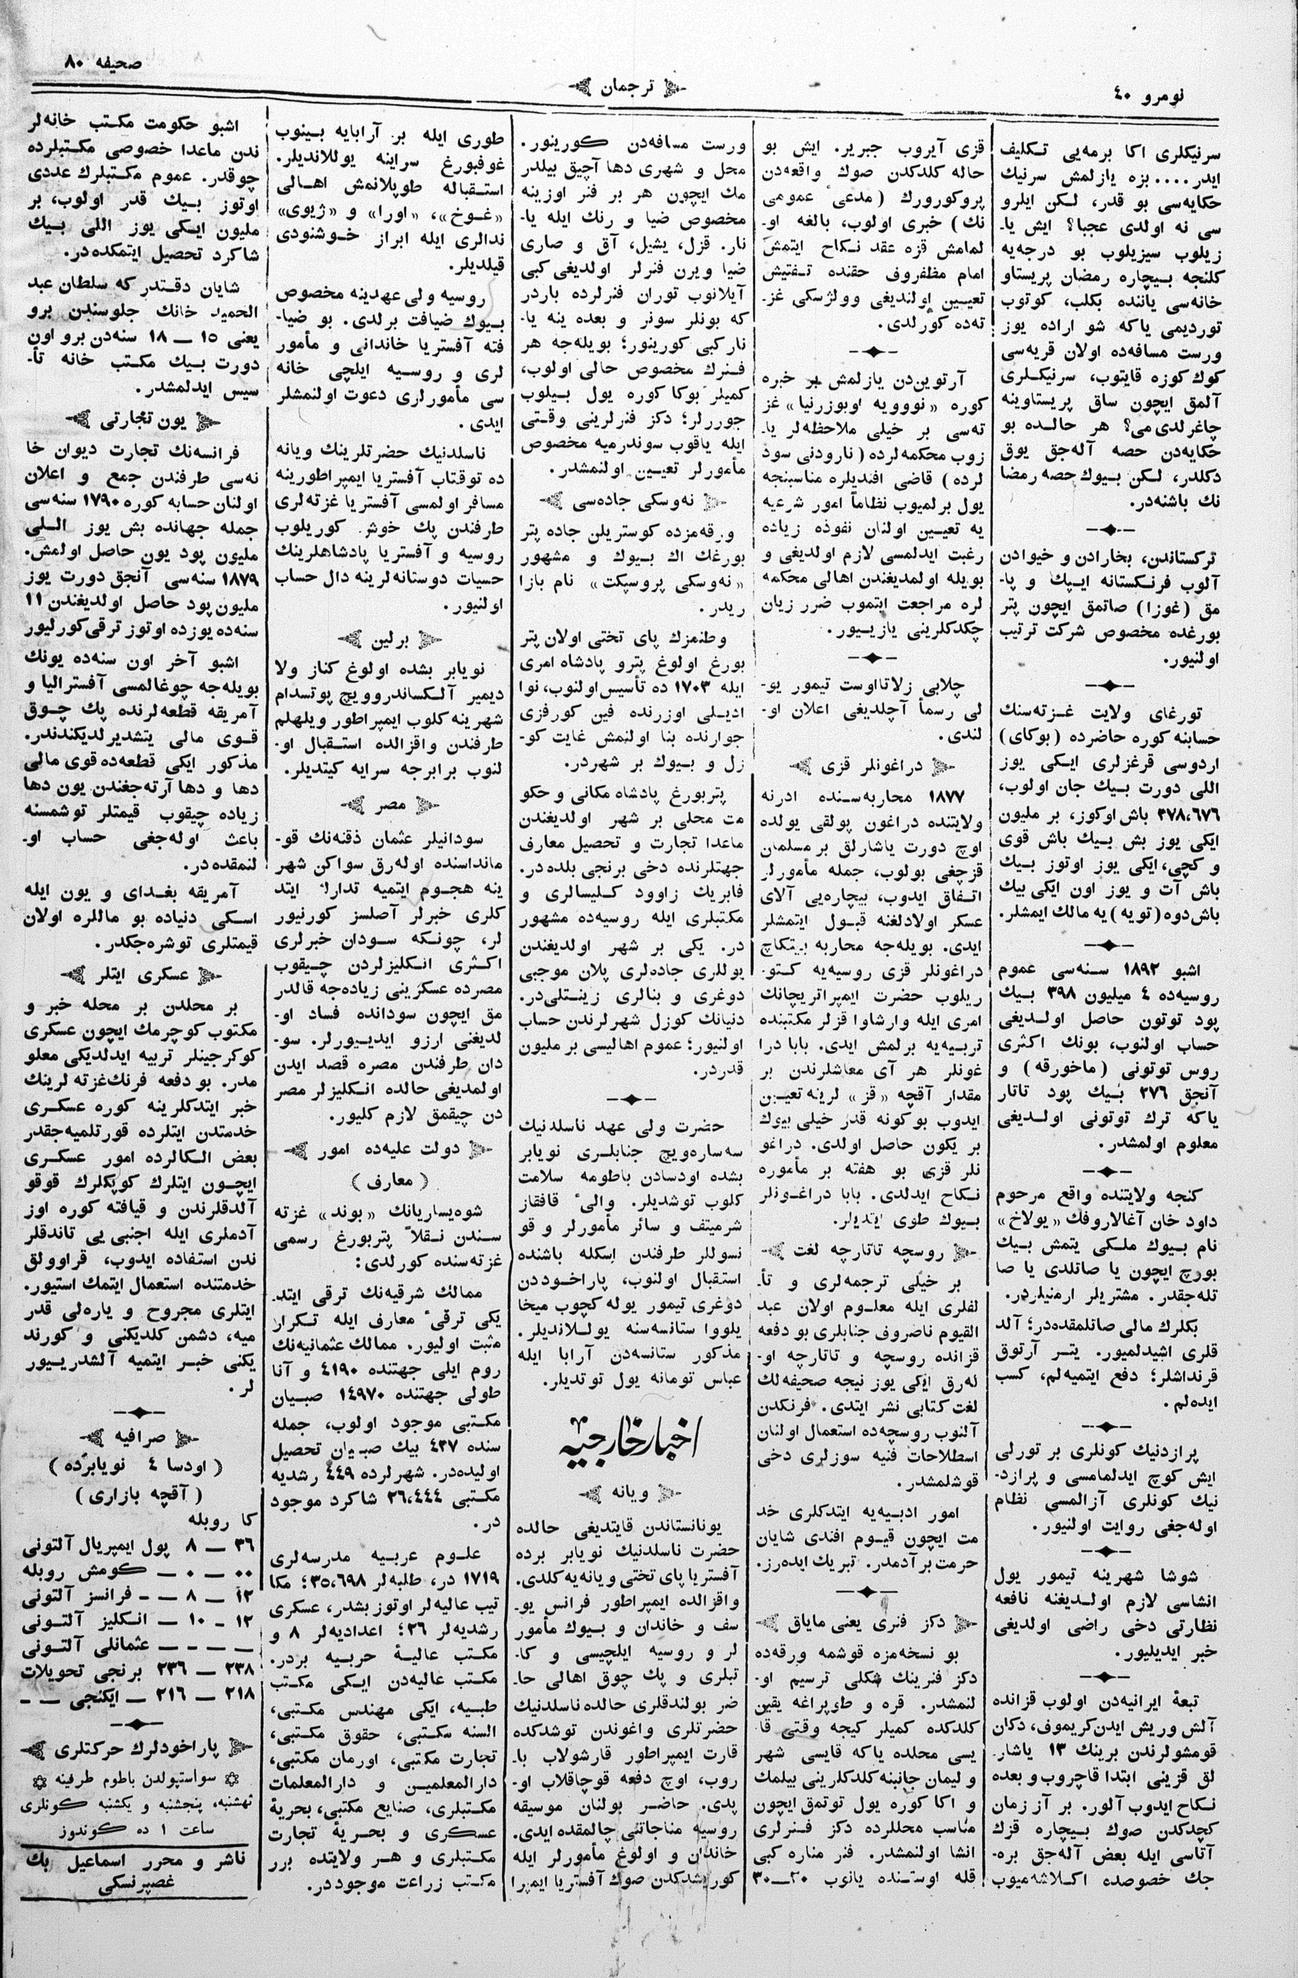 نومرو ٤٠
ترجمان
صحيفه ٨٠
سرنيكلرى اكا برمه‌يى تكليف
ايدر.... بزه يازلمش سرنيك
حكايه‌سى بو قدر، لكن ايلرو
سى نه اولدى عجبا؟ ايش يا-
زيلوب سيزيلوب بو درجه‌يه
كلنجه بيچاره رمضان پريستاو
خانه‌سى ياننده بكلب، كوتوب
توردیمى ياكه شو اراده يوز
ورست مسافه‌ده اولان قريه‌سى
كوك كوزه قايتوب، سرنيكلرى
آلمق ايچون ساق پريستاوينه
چاغرلدى مى؟ هر حالده بو
حكايه‌دن حصه آله‌جق يوق
دكلدر، لكن بيوك حصه رمضا
نك باشنه‌در.
تركستاندن، بخارادن و خيوادن
آلوب فرنكستانه ايپك و پا-
مق (غوزا) صاتمق ايچون پتر
بورغده مخصوص شركت ترتيب
اولنيور.
تورغاى ولايت غزته‌سنك
حسابنه كوره حاضرده (بوكاى)
اردوسى قرغزلرى ايكى يوز
اللى دورت بيك جان اولوب،
٣٧٨،٦٧٦ باش اوكوز، بر مليون
ايكى يوز بش بيك باش قوى
و كچى، ايكى يوز اوتوز بيك
باش آت و يوز اون ايكى بيك
باش دوه (تويه) يه مالك ايمشلر.
اشبو ١٨٩٢ سنه‌سى عموم
روسيه‌ده ٤ ميليون ٣٩٨ بيك
پود توتون حاصل اولديغى
حساب اولنوب، بونك اكثرى
روس توتونى (ماخورقه) و
آنجق ٢٧٦ بيك پود تاتار
ياكه ترك توتونى اولديغى
معلوم اولمشدر.
كنجه ولايتنده واقع مرحوم
داود خان آغالاروفك «يولاخ»
نام بيوك ملكى يتمش بيك
بورچ ايچون يا صاتلدى يا صا
تله‌جقدر. مشتريلر ارمنيلردر.
بكلرك مالى صاتلمقده‌در؛ آلد
قلرى اشيدلميور. يتر آرتوق
قرنداشلر؛ دفع ايتميه‌لم، كسب
ايده‌لم.
پرازدنيك كونلرى بر تورلى
ايش كوچ ايدلمامسى و پرازد-
نيك كونلرى آزالمسى نظام
اوله‌جغى روايت اولنيور.
شوشا شهرينه تيمور يول
انشاسى لازم اولديغنه نافعه
نظارتى دخى راضى اولديغى
خبر ايديليور.
تبعهٔ ايرانيه‌دن اولوب قزانده
آلش ورِيش ايدن كريموف، دكان
قومشولرندن برينك ١٣ ياشار-
لق قزينى ابتدا قاچروب و بعده
نكاح ايدوب آلور. بر آز زمان
كچدكدن صوك بيچاره قزك
آتاسى ايله بعض آله‌جق بره-
جك خصوصده اكلاشه‌ميوب
قزى آيروب جبرير. ايش بو
حاله كلدكدن صوك واقعه‌دن
پروكورورك (مدعى عمومى
نك) خبرى اولوب، بالغه او-
لمامش قزه عقد نكاح ايتمش
امام مظفروف حقنده تفتيش
تعيين اولنديغى وولژسكى غز-
ته‌ده كورلدى.
آرتوين‌دن يازلمش بر خبره
كوره «نوويه اوبوزرنيا» غز
ته‌سى بر خيلى ملاحظه‌لر يا-
زوب محكمه‌لرده (نارودنى سود
لرده) قاضى افنديلره مناسبنجه
يول برلميوب نظاماً امور شرعيه
يه تعيين اولنان نفوذه زياده
رغبت ايدلمسى لازم اولديغى و
بويله اولمديغندن اهالى محكمه
لره مراجعت ايتموب ضرر زيان
چكدكلرينى يازييور.
چلابى زلاتااوست تيمور يو-
لى رسماً آچلديغى اعلان او-
لندى.
دراغونلر قزى
١٨٧٧ محاربه‌سنده ادرنه
ولايتنده دراغون پولقى يولده
اوچ دورت ياشارلق بر مسلمان
قزچغى بولوب، جمله مأمورلر
اتفاق ايدوب، بيچاره‌يى آلاى
عسكر اولادلغنه قبول ايتمشلر
ايدى. بويله‌جه محاربه بيتكاچ
دراغونلر قزى روسيه‌يه كتو-
ريلوب حضرت ايمپراتريچانك
امرى ايله وارشاوا قزلر مكتبنده
تربيه‌يه برلمش ايدى. بابا درا
غونلر هر آى معاشلرندن بر
مقدار آقچه «قز» لرينه تعيين
ايدوب بو كونه قدر خيلى بيوك
بر يكون حاصل اولدى. دراغو
نلر قزى بو هفته بر مأموره
نكاح ايدلدى. بابا دراغونلر
بيوك طوى ايتديلر.
روسچه تاتارچه لغت
بر خيلى ترجمه‌لرى و تأ-
لفلرى ايله معلوم اولان عبد
القيوم ناصروف جنابلرى بو دفعه
قزانده روسچه و تاتارچه او-
له‌رق ايكى يوز نيجه صحيفه‌لك
لغت كتابى نشر ايتدى. فرنكدن
آلنوب روسچه‌ده استعمال اولنان
اسطلاحات فنيه سوزلرى دخى
قوشلمشدر.
امور ادبيه‌يه ايتدكلرى خد
مت ايچون قيوم افندى شايان
حرمت بر آدمدر. تبريك ايده‌رز.
دكز فنرى يعنى ماياق
بو نسخه‌مزه قوشمه ورقه‌ده
دكز فنرينك شكلى ترسيم او-
لنمشدر. قره و طوپراغه يقين
كلدكده كميلر كيجه وقتى قا
يسى محلده ياكه قايسى شهر
و ليمان جانبنه كلدكلرينى بيلمك
و اكا كوره يول توتمق ايچون
مناسب محللرده دكز فنرلرى
انشا اولنمشدر. فنر مناره كبى
قله اوستنده يانوب ٢٠—٣٠
ورست مسافه‌دن كورينور.
محل و شهرى دها آچيق بيلدر
مك ايچون هر بر فنر اوزينه
مخصوص ضيا و رنك ايله يا-
نار. قزل، يشيل، آق و صارى
ضيا ويرن فنرلر اولديغى كبى
آيلانوب توران فنرلرده باردر
كه بونلر سونر و بعده ينه يا-
نار كبى كورينور؛ بويله‌جه هر
فنرك مخصوص حالى اولوب،
كميلر بوكا كوره يول بيلوب
جوررلر؛ دكز فنرلرينى وقتى
ايله ياقوب سوندرميه مخصوص
مأمورلر تعيين اولنمشدر.
نه‌وسكى جاده‌سى
ورقه‌مزده كوستريلن جاده پتر
بورغك اك بيوك و مشهور
«نه‌وسكى پروسپكت» نام بازا
ريدر.
وطنمزك پاى تختى اولان پتر
بورغ اولوغ پترو پادشاه امرى
ايله ١٧٠٣ ده تأسيس اولنوب، نوا
اديلى اوزرنده فين كورفزى
جوارنده بنا اولنمش غايت كو-
زل و بيوك بر شهردر.
پتربورغ پادشاه مكانى و حكو
مت محلى بر شهر اولديغندن
ماعدا تجارت و تحصيل معارف
جهتلرنده دخى برنجى بلده‌در.
فابريك زاوود كليسالرى و
مكتبلرى ايله روسيه‌ده مشهور
در. يكى بر شهر اولديغندن
يوللرى جاده‌لرى پلان موجبى
دوغرى و بنالرى زينتلى‌در.
دنيانك كوزل شهرلرندن حساب
اولنيور؛ عموم اهاليسى بر مليون
قدردر.
حضرت ولى عهد ناسلدنيك
سه‌ساره‌ويچ جنابلرى نويابر
بشده اودسادن باطومه سلامت
كلوب توشديلر. والىٔ قافقاز
شرميتف و سائر مأمورلر و قو
نسوللر طرفندن اسكله باشنده
استقبال اولنوب، پاراخوددن
دوغرى تيمور يوله كچوب ميخا
يلووا ستانسه‌سنه يوللانديلر.
مذكور ستانسه‌دن آرابا ايله
عباس تومانه يول توتديلر.
اخبار خارجيه
ويانه
يونانستاندن قايتديغى حالده
حضرت ناسلدنيك نويابر برده
آفستريا پاى تختى ويانه‌يه كلدى.
واقزالده ايمپراطور فرانس يو-
سف و خاندان و بيوك مأمور
لر و روسيه ايلچيسى و كا-
تبلرى و پك چوق اهالى حا-
ضر بولندقلرى حالده ناسلدنيك
حضرتلرى واغوندن توشدكده
قارت ايمپراطور قارشولاب با-
روب، اوچ دفعه قوچاقلاب او-
پدى. حاضر بولنان موسيقه
روسيه مناجاتنى چالمقده ايدى.
خاندان و اولوغ مأمورلر ايله
كوريشدكدن صوك آفستريا ايمپرا
طورى ايله بر آرابايه بينوب
غوفبورغ سراينه يوللانديلر.
استقباله طوپلانمش اهالى
«غوخ»، «اورا» و «ژيوى»
ندالرى ايله ابراز خوشنودى
قيلديلر.
روسيه ولى عهدينه مخصوص
بيوك ضيافت برلدى. بو ضيا-
فته آفستريا خاندانى و مأمور
لرى و روسيه ايلچى خانه
سى مأمورلرى دعوت اولنمشلر
ايدى.
ناسلدنيك حضرتلرينك ويانه
ده توقتاب آفستريا ايمپراطورينه
مسافر اولمسى آفستريا غزته‌لرى
طرفندن پك خوش كوريلوب
روسيه و آفستريا پادشاهلرينك
حسيات دوستانه‌لرينه دال حساب
اولنيور.
برلين
نويابر بشده اولوغ كناز ولا
ديمير آلكساندروويچ پوتسدام
شهرينه كلوب ايمپراطور ويلهلم
طرفندن واقزالده استقبال او-
لنوب برابرجه سرايه كيتديلر.
مصر
سودانيلر عثمان ذقنه‌نك قو-
مانداسنده اوله‌رق سواكن شهر
ينه هجوم ايتميه تدارك ايتد
كلرى خبرلر آصلسز كورنيور
لر، چونكه سودان خبرلرى
اكثرى انكليزلردن چيقوب
مصرده عسكرينى زياده‌جه قالدر
مق ايچون سودانده فساد او-
لديغنى ارزو ايدييورلر. سو-
دان طرفندن مصره قصد ايدن
اولمديغى حالده انكليزلر مصر
دن چيقمق لازم كليور.
دولت عليه‌ده امور
(معارف)
شوه‌يساريانك «بوند» غزته
سندن نقلاً پتربورغ رسمى
غزته‌سنده كورلدى:
ممالك شرقيه‌نك ترقى ايتد
يكى ترقىٔ معارف ايله تكرار
مثبت اوليور. ممالك عثمانيه‌نك
روم ايلى جهتنده ٤١٩٠ و آنا
طولى جهتنده ١٤٩٧٠ صبيان
مكتبى موجود اولوب، جمله
سنده ٤٣٧ بيك صبيان تحصيل
اوليده‌در. شهرلرده ٤٤٩ رشديه
مكتبى ٢٦،٤٤٤ شاكرد موجود
در.
علوم عربيه مدرسه‌لرى
١٧١٩ در، طلبه‌لر ٣٥،٦٩٨؛ مكا
تيب عاليه‌لر اوتوز بشدر، عسكرى
رشديه‌لر ٢٦؛ اعداديه‌لر ٨ و
مكتب عاليهٔ حربيه بردر.
مكتب عاليه‌دن ايكى مكتب
طبيه، ايكى مهندس مكتبى،
السنه مكتبى، حقوق مكتبى،
تجارت مكتبى، اورمان مكتبى،
دارالمعلمين و دارالمعلمات
مكتبلرى، صنايع مكتبى، بحريهٔ
عسكرى و بحريهٔ تجارت
مكتبلرى و هر ولايتده برر
مكتب زراعت موجوددر.
اشبو حكومت مكتب خانه‌لر
ندن ماعدا خصوصى مكتبلرده
چوقدر. عموم مكتبلرك عددى
اوتوز بيك قدر اولوب، بر
مليون ايكى يوز اللى بيك
شاكرد تحصيل ايتمكده‌در.
شايان دقتدر كه سلطان عبد
الحميد خانك جلوسندن برو
يعنى ١٥ — ١٨ سنه‌دن برو اون
دورت بيك مكتب خانه تأ-
سيس ايدلمشدر.
يون تجارتى
فرانسه‌نك تجارت ديوان خا
نه‌سى طرفندن جمع و اعلان
اولنان حسابه كوره ١٧٩٠ سنه‌سى
جمله جهانده بش يوز اللى
مليون پود يون حاصل اولمش.
١٨٧٩ سنه‌سى آنجق دورت يوز
مليون پود حاصل اولديغندن ١١
سنه‌ده يوزده اوتوز ترقى كورليور
اشبو آخر اون سنه‌ده يونك
بويله‌جه چوغالمسى آفستراليا و
آمريقه قطعه‌لرنده پك چوق
قوى مالى يتشديرلديكندندر.
مذكور ايكى قطعه‌ده قوى مالى
دها و دها آرته‌جغندن يون دها
زياده چيقوب قيمتلر توشمسنه
باعث اوله‌جغى حساب او-
لنمقده‌در.
آمريقه بغداى و يون ايله
اسكى دنياده بو ماللره اولان
قيمتلرى توشره‌جكدر.
عسكرى ايتلر
بر محلدن بر محله خبر و
مكتوب كوچرمك ايچون عسكرى
كوكرجينلر تربيه ايدلديكى معلو
مدر. بو دفعه فرنك غزته‌لرينك
خبر ايتدكلرينه كوره عسكرى
خدمتدن ايتلرده قورتلميه‌جقدر
بعض الكالرده امور عسكرى
ايچون ايتلرك كوپكلرك قوقو
آلدقلرندن و قيافته كوره اوز
آدملرى ايله اجنبى يى تاندقلر
ندن استفاده ايدوب، قراوولق
خدمتنده استعمال ايتمك استيور.
ايتلرى مجروح و ياره‌لى قدر
ميه، دشمن كلديكنى و كورند
يكنى خبر ايتميه آلشدرييور
لر.
صرافيه
(اودسا ٤ نويابرده)
(آقچه بازارى)
كا روبله
٣٦ — ٨ پول ايمپريال آلتونى
٠٠ — ٠ — كومش روبله
١٢ — ٨ — - فرانسز آلتونى
١٢ - ١٠ — انكليز آلتونى
— — - — عثمانلى آلتونى
٢٣٨ — ٢٣٦ برنجى تحويلات
٢١٨ — ٢١٦ — ايكنجى — -
پاراخودلرك حركتلرى
سواستپولدن باطوم طرفينه
پنجشنبه و يكشنبه كونلرى
ساعت ١ ده كوندوز
ناشر و محرر اسماعيل بك
غصپرنسكى